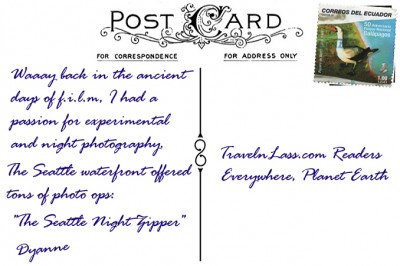 POST CARD
FOR CORRESPONDENCE
FOR ADDRESS ONLY
CORREOS DEL ECUADOR
Galápagos
Waaay back in the ancient
days of f.i.l.m, I had a
passion for experimental
and night photography,
The Seattle waterfront offered
tons of photo ops:
"The Seattle Night Zipper"
Dyanne
TravelnLass.com Readers
Everywhere, Planet Earth